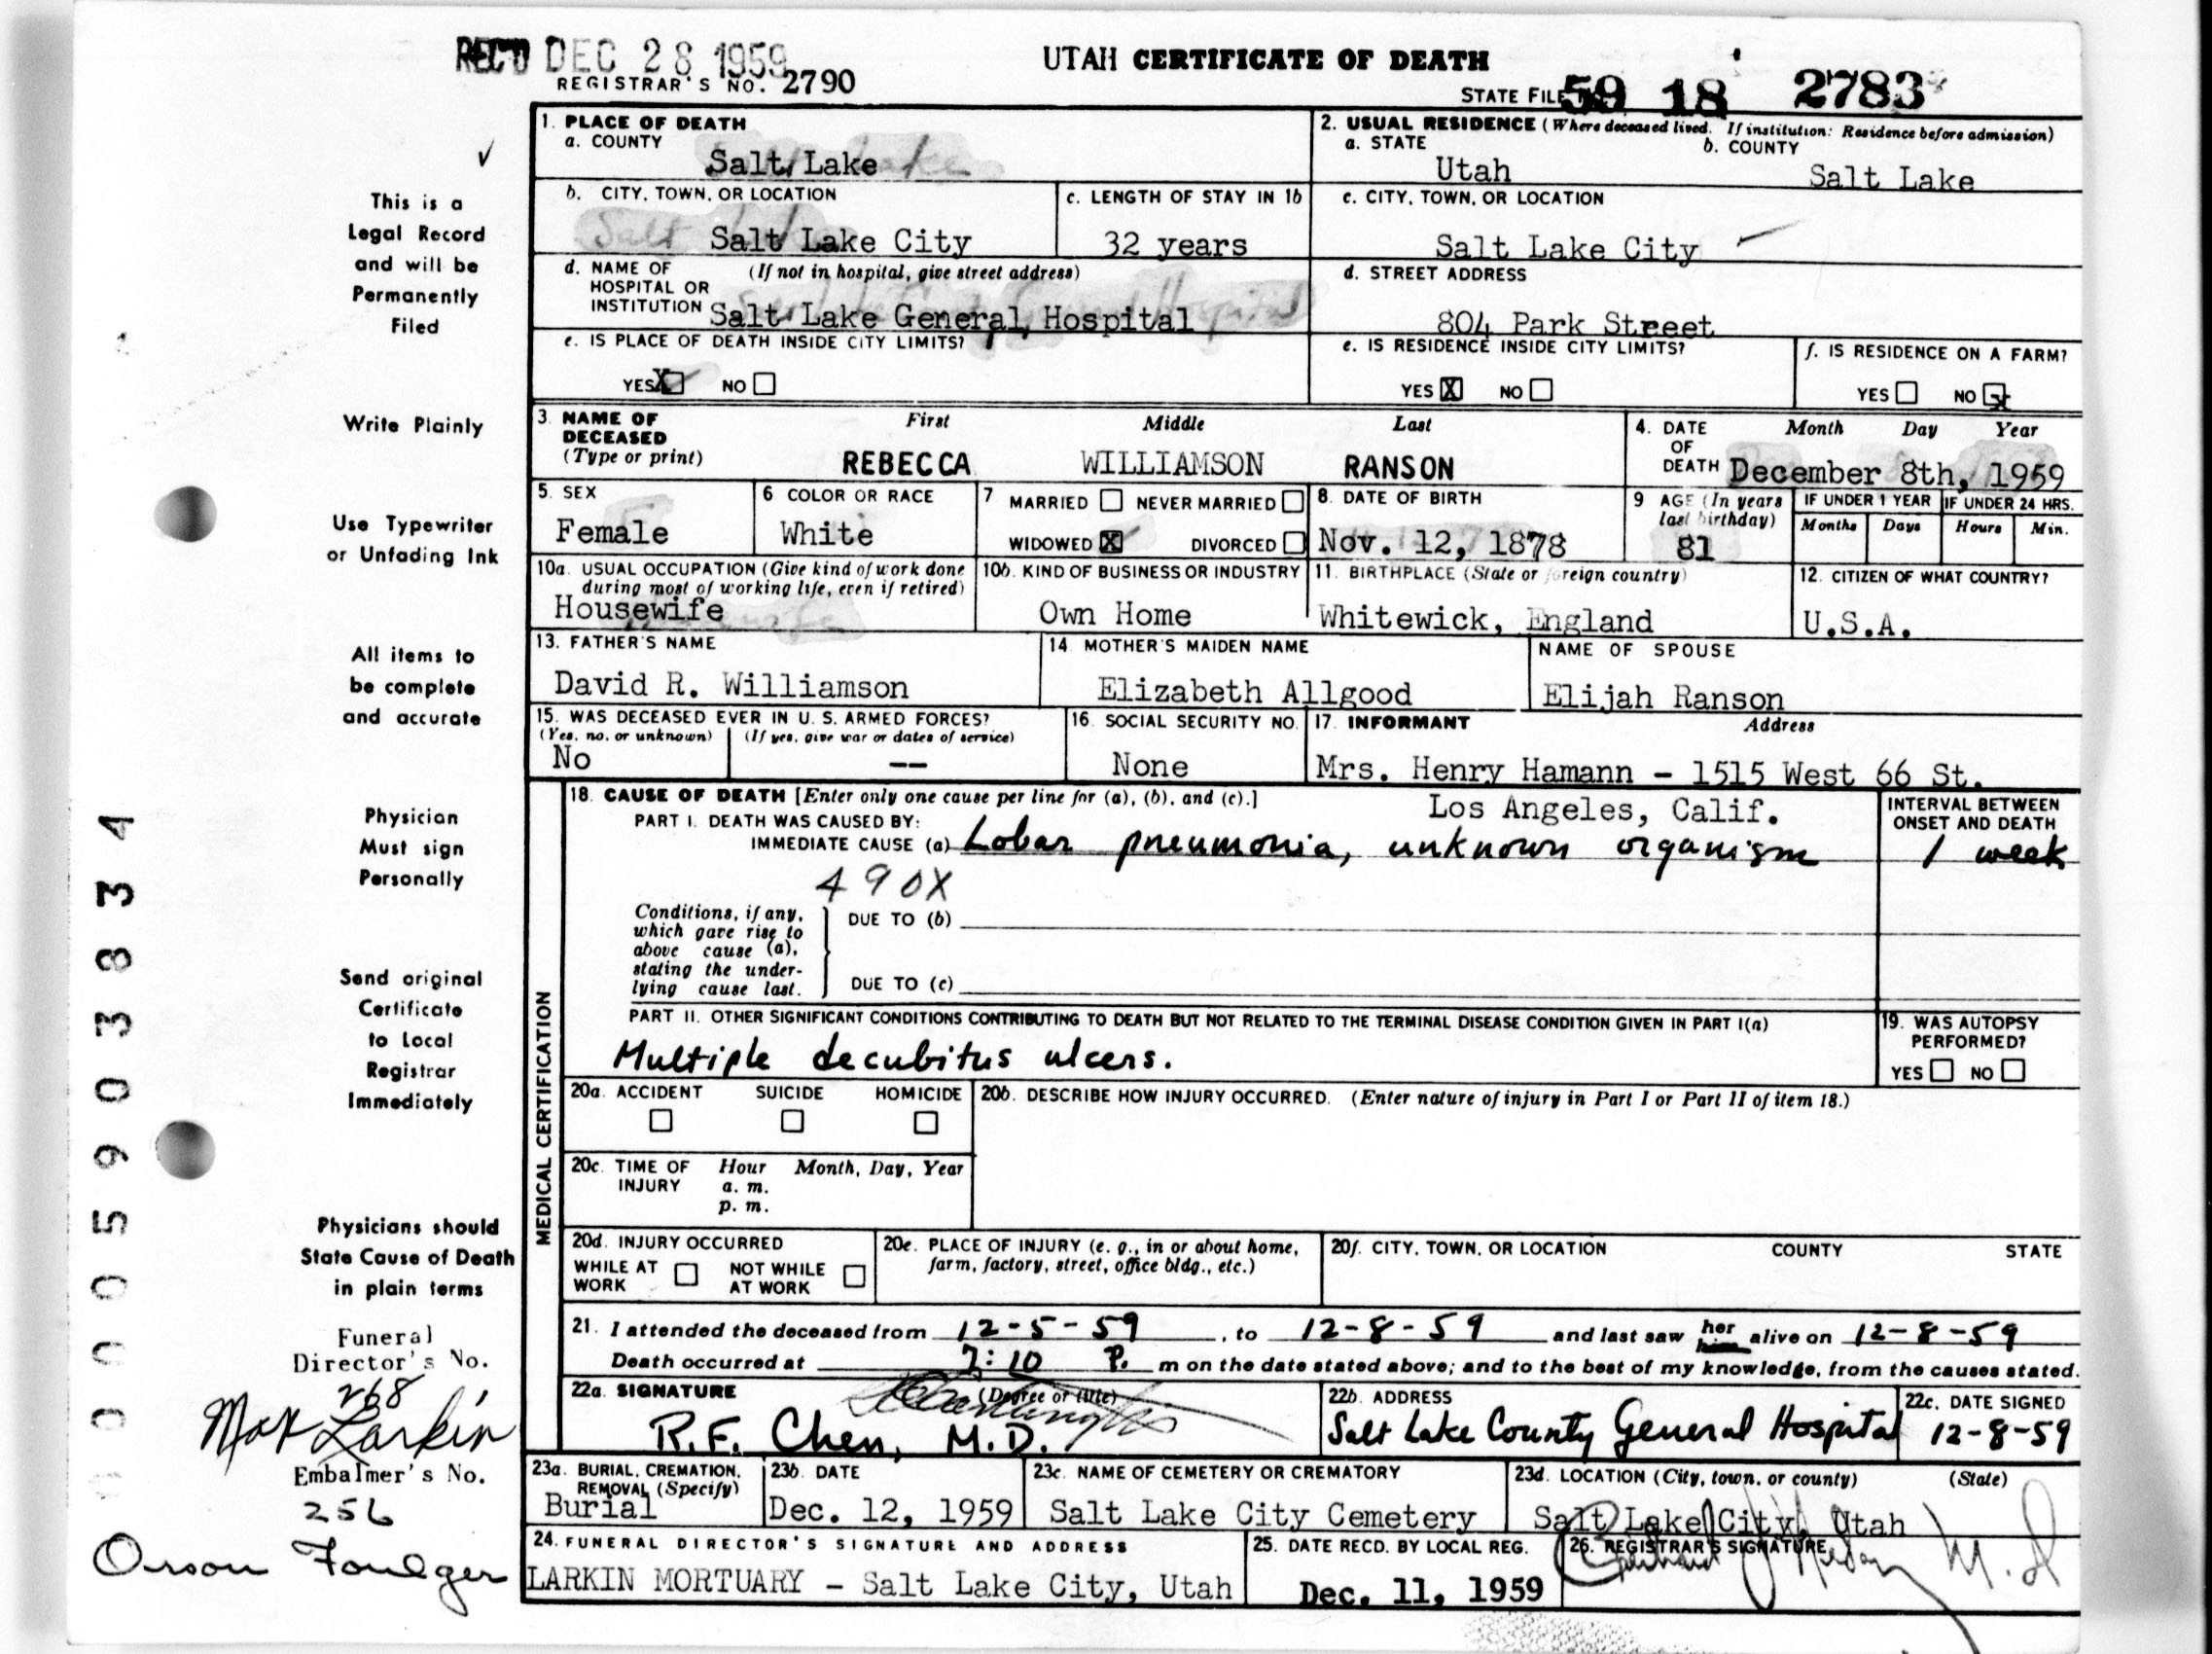 REC'D DEC 28 1959
REGISTRAR'S NO. 2790
UTAH CERTIFICATE OF DEATH
STATE FILE 59 18 2783
1. PLACE OF DEATH
a. COUNTY
Salt Lake
2. USUAL RESIDENCE (Where deceased lived. If institution: Residence before admission)
a. STATE b. COUNTY
Utah Salt Lake
b. CITY, TOWN, OR LOCATION
Salt Lake City
c. LENGTH OF STAY IN 1b
32 years
c. CITY, TOWN, OR LOCATION
Salt Lake City
d. NAME OF (If not in hospital, give street address)
HOSPITAL OR
INSTITUTION Salt Lake General Hospital
d. STREET ADDRESS
804 Park Street
e. IS PLACE OF DEATH INSIDE CITY LIMITS?
YES X NO
e. IS RESIDENCE INSIDE CITY LIMITS?
YES X NO
f. IS RESIDENCE ON A FARM?
YES NO X
3. NAME OF First Middle Last
DECEASED
(Type or print) REBECCA WILLIAMSON RANSON
4. DATE Month Day Year
OF
DEATH December 8th, 1959
5. SEX
Female
6 COLOR OR RACE
White
7 MARRIED NEVER MARRIED
WIDOWED X DIVORCED
8. DATE OF BIRTH
Nov. 12, 1878
9 AGE (In years
last birthday)
81
IF UNDER 1 YEAR IF UNDER 24 HRS.
Months Days Hours Min.
10a. USUAL OCCUPATION (Give kind of work done
during most of working life, even if retired)
Housewife
10b. KIND OF BUSINESS OR INDUSTRY
Own Home
11. BIRTHPLACE (State or foreign country)
Whitewick, England
12. CITIZEN OF WHAT COUNTRY?
U.S.A.
13. FATHER'S NAME
David R. Williamson
14 MOTHER'S MAIDEN NAME
Elizabeth Allgood
NAME OF SPOUSE
Elijah Ranson
15. WAS DECEASED EVER IN U. S. ARMED FORCES?
(Yes, no, or unknown) (If yes, give war or dates of service)
No --
16. SOCIAL SECURITY NO.
None
17. INFORMANT Address
Mrs. Henry Hamann - 1515 West 66 St.
Los Angeles, Calif.
MEDICAL CERTIFICATION
18. CAUSE OF DEATH [Enter only one cause per line for (a), (b), and (c).]
PART I. DEATH WAS CAUSED BY:
IMMEDIATE CAUSE (a) Lobar pneumonia, unknown organism
INTERVAL BETWEEN
ONSET AND DEATH
1 week
490X
Conditions, if any,
which gave rise to
above cause (a),
stating the under-
lying cause last.
DUE TO (b)
DUE TO (c)
PART II. OTHER SIGNIFICANT CONDITIONS CONTRIBUTING TO DEATH BUT NOT RELATED TO THE TERMINAL DISEASE CONDITION GIVEN IN PART I(a)
Multiple decubitus ulcers.
19. WAS AUTOPSY
PERFORMED?
YES NO
20a. ACCIDENT SUICIDE HOMICIDE
20b. DESCRIBE HOW INJURY OCCURRED. (Enter nature of injury in Part I or Part II of item 18.)
20c. TIME OF Hour Month, Day, Year
INJURY a. m.
p. m.
20d. INJURY OCCURRED
WHILE AT NOT WHILE
WORK AT WORK
20e. PLACE OF INJURY (e. g., in or about home,
farm, factory, street, office bldg., etc.)
20f. CITY, TOWN, OR LOCATION COUNTY STATE
21. I attended the deceased from 12-5-59, to 12-8-59 and last saw her him alive on 12-8-59
Death occurred at 7:10 P. m on the date stated above; and to the best of my knowledge, from the causes stated.
22a. SIGNATURE (Degree or title)
R.F. Chen, M.D.
22b. ADDRESS
Salt Lake County General Hospital
22c. DATE SIGNED
12-8-59
23a. BURIAL, CREMATION,
REMOVAL (Specify)
Burial
23b. DATE
Dec. 12, 1959
23c. NAME OF CEMETERY OR CREMATORY
Salt Lake City Cemetery
23d. LOCATION (City, town, or county) (State)
Salt Lake City, Utah
24. FUNERAL DIRECTOR'S SIGNATURE AND ADDRESS
LARKIN MORTUARY - Salt Lake City, Utah
25. DATE RECD. BY LOCAL REG.
Dec. 11, 1959
26. REGISTRAR'S SIGNATURE
M.D
This is a
Legal Record
and will be
Permanently
Filed
Write Plainly
Use Typewriter
or Unfading Ink
All items to
be complete
and accurate
Physician
Must sign
Personally
Send original
Certificate
to Local
Registrar
Immediately
Physicians should
State Cause of Death
in plain terms
Funeral
Director's No.
268
Max Larkin
Embalmer's No.
256
Orson Foulger
0005903834